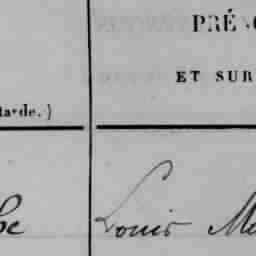 PRÉNO
ET SUR
tarde.)
be Louis Me